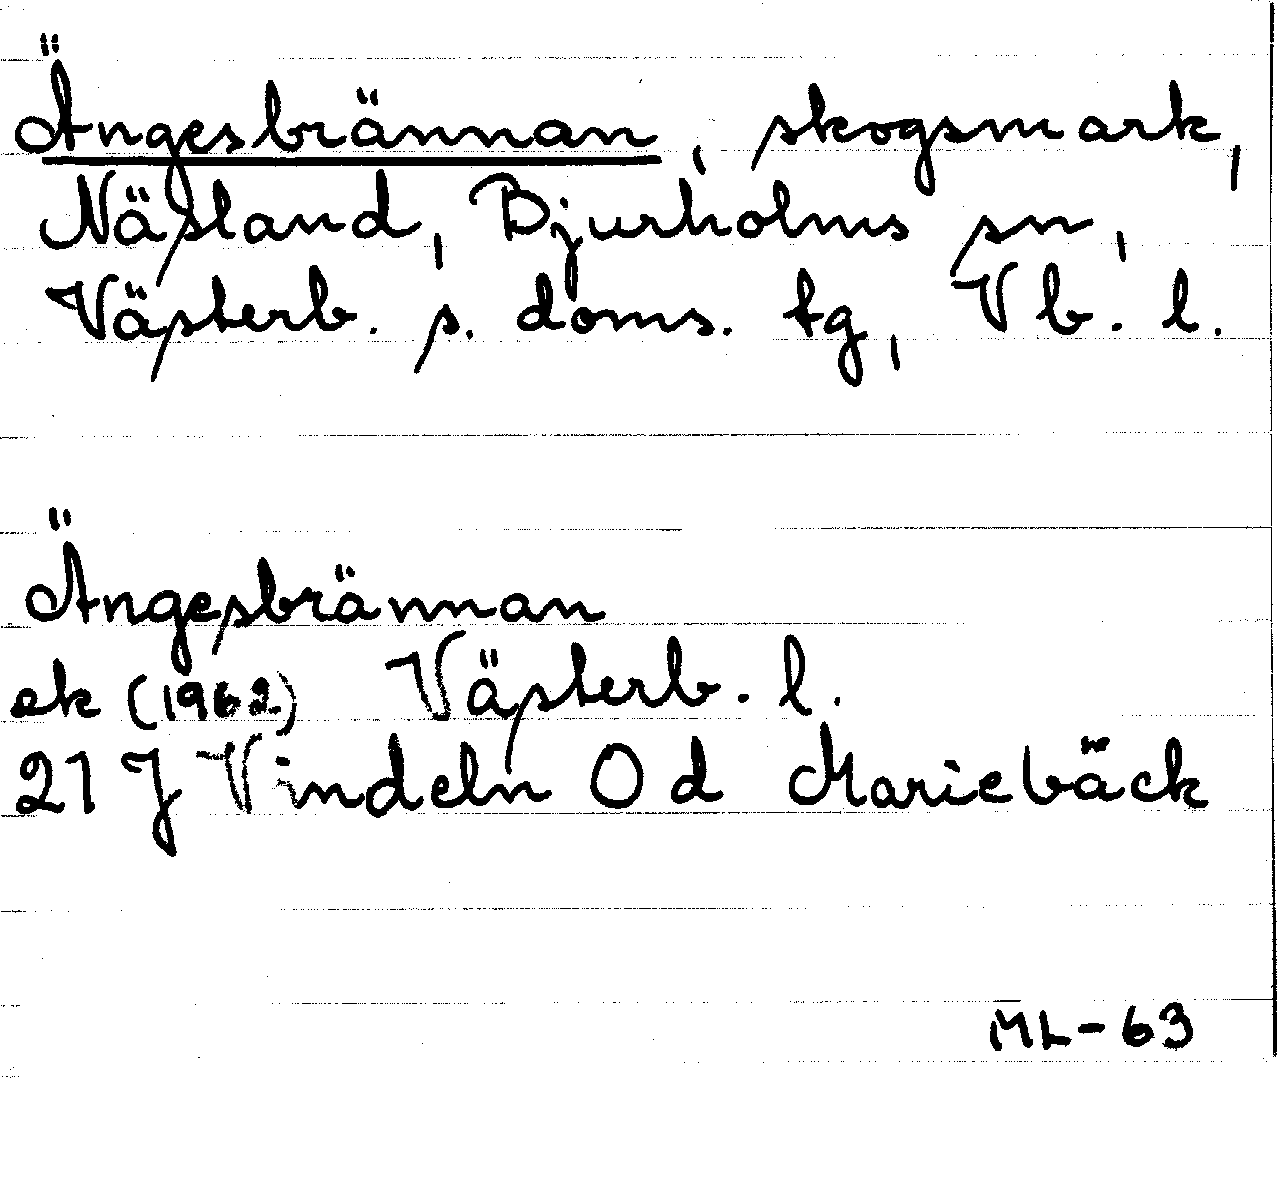 Ängesbrännan, skogsmark,
Näsland, Bjurholms sn,
Västerb. s. doms. tg, Vb. l.
Ängesbrännan
ek (1962) Västerb. l.
21 J Vindeln 0 d Mariebäck
ML-63